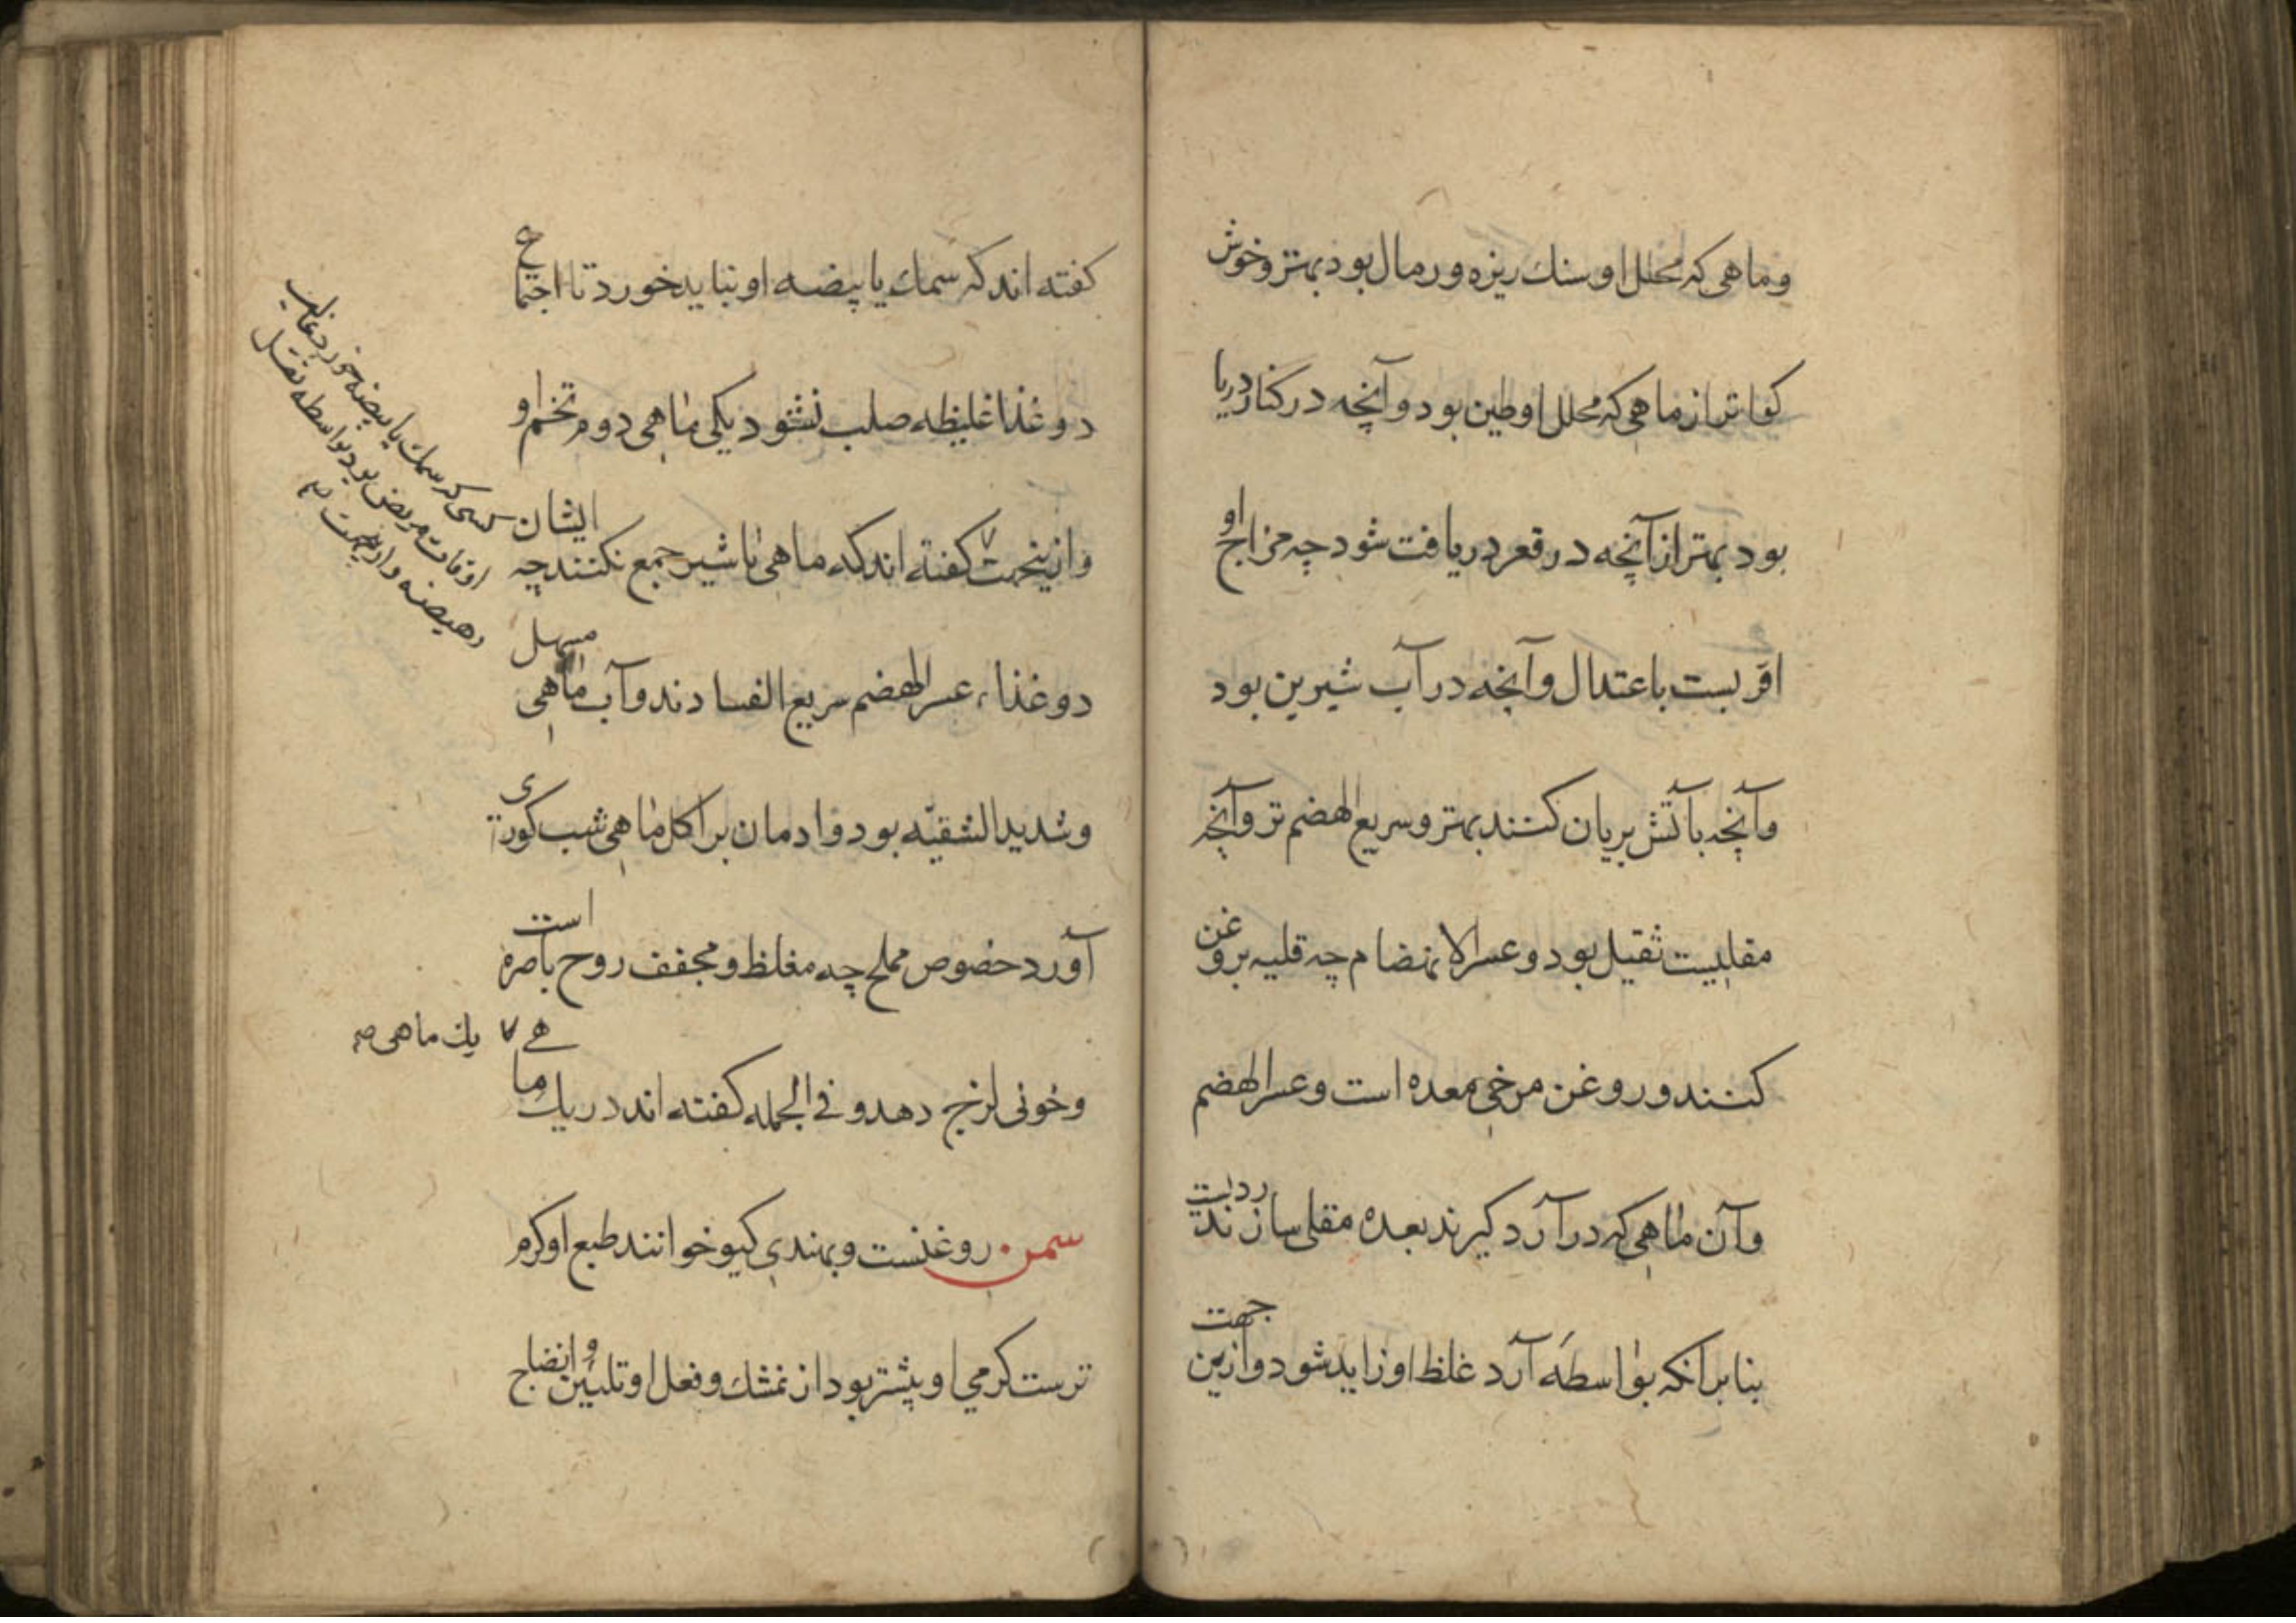 وماهی که محلل او سنك ریزه و رمال بود بهتر وخوش
کوا تر از ماهی که محلل او طین بود و آنچه در کنار دریا
بود بهتر از آنچه در قعر دریافت شود چه مزاج او
اقربست باعتدال و آنچه در آب شیرین بود
وآنچه بآتش بریان کنند بهتر و سریع الهضم تر وآنچه
مقلیست ثقیل بود و عسر الانهضام چه قلیه بروغن
کنند و روغن مرخی معده است و عسر الهضم
وآن ماهی که در آرد کیرند بعده مقلی سازند ردیست
بنا برانکه بواسطهٔ آرد غلظ او زاید شود وازین جهت
کفته اند که سمك یا بیضه او نباید خورد تا اجتماع
دو غذا غلیظه صلب نشود یکی ماهی دوم تخم او
وازینجهت کفته اند که ماهی با شیر جمع نکنند چه ایشان
دو غذاء عسر الهضم سریع الفسادند و آب ماهی مسهل
وشدید الشقیّه بود و ادمان بر اکل ماهی شب کوری
آورد خصوص مملح چه مغلظ و مجفف روح باصره است
وخونی لزج دهد و فی الجمله کفته اند در یك ماهی
سمن روغنست و بهندی کیو خوانند طبع او کرم
ترست کرمی او بیشتر بود از نمشك و فعل او تلیین و انضاج
کسی که سمك یا بیضه خورد غالب
اوقات مریض بود بواسطه ثقل
وهیضه و ازینجهت صح
یك ماهی صح